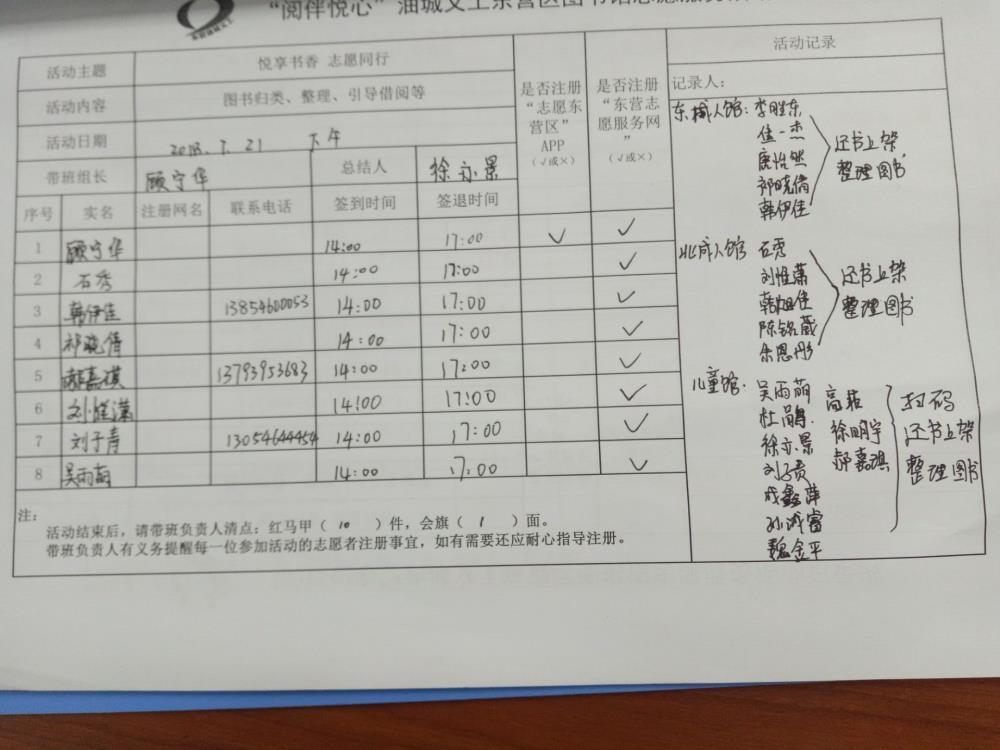 “阅伴悦心”油城义工东营区图书馆志愿服务
活动主题 悦享书香 志愿同行
活动内容 图书归类、整理、引导借阅等
活动日期 2018.7.21 下午
带班组长 顾宁华 总结人 徐亦景
是否注册“志愿东营区”APP（√或×）
是否注册“东营志愿服务网”（√或×）
序号 实名 注册网名 联系电话 签到时间 签退时间
1 顾宁华 14:00 17:00 ✓ ✓
2 石秀 14:00 17:00 ✓
3 韩伊佳 13854600053 14:00 17:00 ✓
4 祁晓倩 14:00 17:00 ✓
5 郝嘉琪 13793953683 14:00 17:00 ✓
6 刘惟潇 14:00 17:00 ✓
7 刘子青 13054644454 14:00 17:00 ✓
8 吴雨萌 14:00 17:00 ✓
注：
活动结束后，请带班负责人清点：红马甲（10）件，会旗（1）面。
带班负责人有义务提醒每一位参加活动的志愿者注册事宜，如有需要还应耐心指导注册。
活动记录
记录人：
东成人馆：李胜东
一杰
庞怡然
祁晓倩
韩伊佳
还书上架
整理图书
北成人馆 石秀
刘惟潇
韩旭佳
陈铭葳
余恩彤
还书上架
整理图书
儿童馆：吴雨萌
杜鹃
徐亦景
刘子青
成鑫萍
孙诚富
魏金平
高
徐明宇
郝嘉琪
扫码
还书上架
整理图书